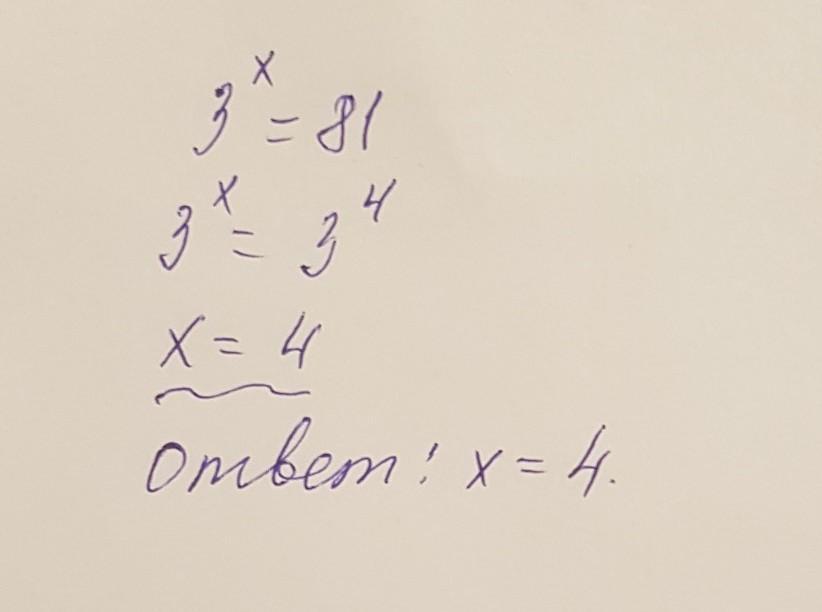 3^x = 81
3^x = 3^4
x = 4
Ответ: x = 4.